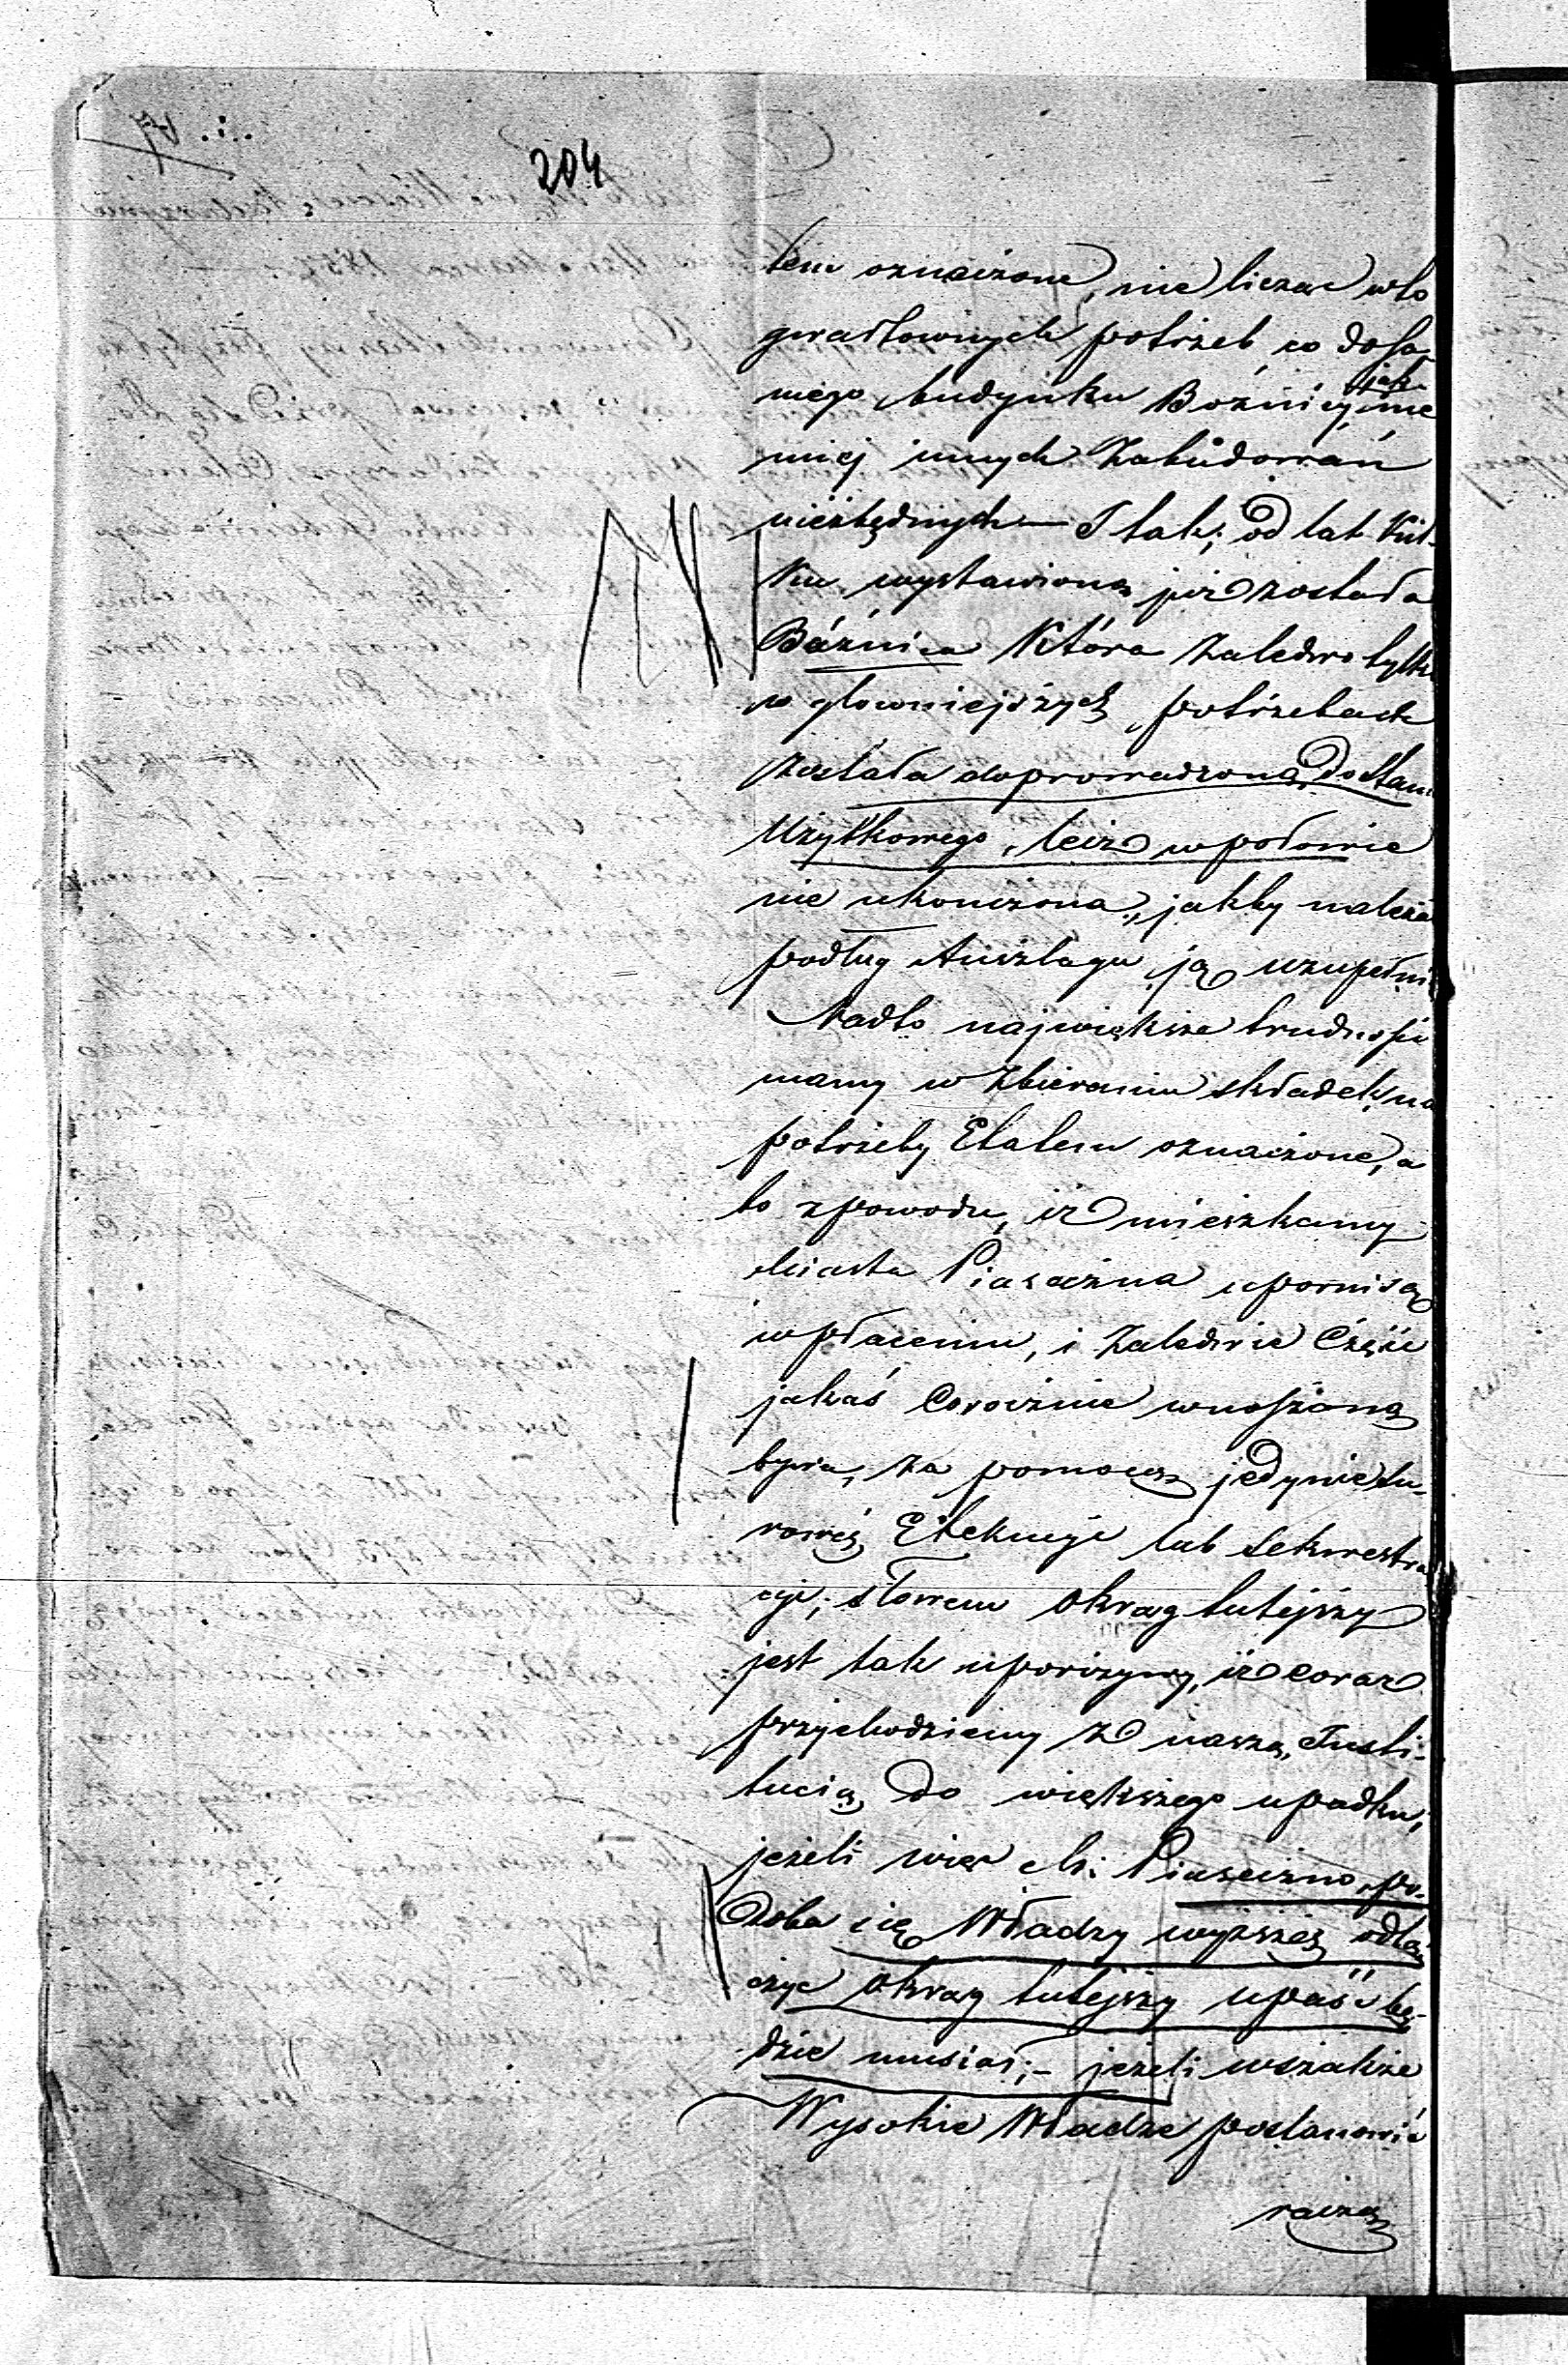 204
tem oznaczone, nie licząc w to
gwałtownych potrzeb co do sa-
mego budynku Bożnicy, jak nie
mniej innych Zabudowań
niezbędnych — I tak; od lat kil-
ku wystawiona już została
Bóżnica Która zaledwo tylko
w głowniejszych potrzebach
została doprowadzona do stanu
Użytkowego, lecz w połowie
nie ukończona, jakby należa
podług Anszlagu ją uzupełni
Nadto największe trudności
mamy w Zbieraniu składek na
potrzeby Etatem oznaczone, a
to z powodu, iż mieszkańcy
Miasta Piaseczna uporni są
w płaceniu, i Zaledwie Część
jakaś Corocznie wnoszoną
bywa, za pomocą jedynie su-
rowéj Exekucyi lub sekwestra
cyi; słowem okrąg tutejszy
jest tak uporczywy, iż coraz
przychodziemy z naszą Insti-
tucią do większego upadku;
jeżeli więc M: Piaseczno po-
doba się Władzy wyższéj odłą-
czyć okrąg tutejszy upaść bę-
dzie musiał; – jeżeli wszakże
Wysokie Władze postanowić
raczą